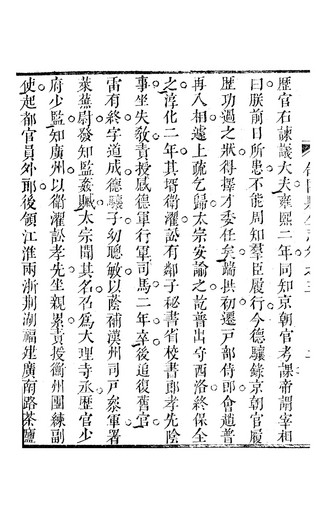 歴官右諫議大夫雍熙二年同知京朝官考課帝謂宰相
曰朕前日所患不能周知羣臣履行今德驤錄京朝官履
歴功過之狀得擇才委任矣端拱初遷戸部侍郎會趙普
再入相遽上疏乞歸太宗安諭之乾普出守西洛終保全
之淳化二年其壻衛濯訟有鄰子秘書省校書郎孝先陰
事坐失敎責授感德軍行軍司馬二年卒後追復舊官
雷有終字道成德驤子幼聰敏以蔭補漢州司戸叅軍署
萊蕪尉發知監姦贓太宗聞其名召爲大理寺丞歴官少
府少監知廣州以衛濯訟孝先坐親累責授衡州團練副
使起都官員外郎後領江淮兩浙荆湖福建廣南路茶鹽